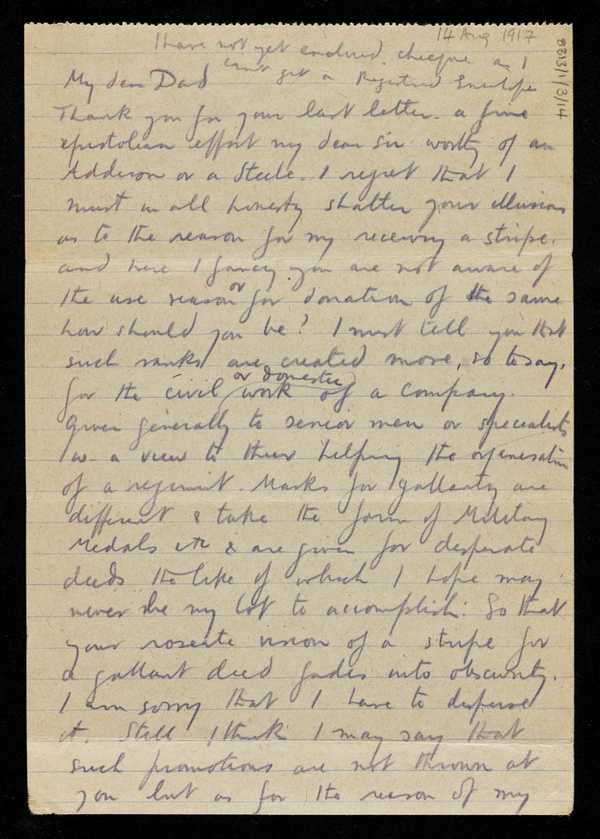 14 Aug 1917
8813/1/3/14
I have not yet endorsed cheque as I
can't get a Registered Envelope
My dear Dad
Thank you for your last letter. a fine
epistolean effort my dear Sir worthy of an
Addison or a Steele. I regret that I
must in all honesty shatter your illusions
as to the reason for my receiving a stripe.
and here I fancy you are not aware of
the use reason or for donation of the same
how should you be? I must tell you that
such ranks are created more, so to say,
for the civil or domestic work of a company.
Given generally to senior men or specialists
w. a view to their helping the organisation
of a regiment. Marks for gallantry are
different & take the form of Military
Medals etc & are given for desperate
deeds the like of which I hope may
never be my lot to accomplish. So that
your roseate vision of a stripe for
a gallant deed fades into obscurity.
I am sorry that I have to disperse
it. Still I think I may say that
such promotions are not thrown at
you but as for the reason of my